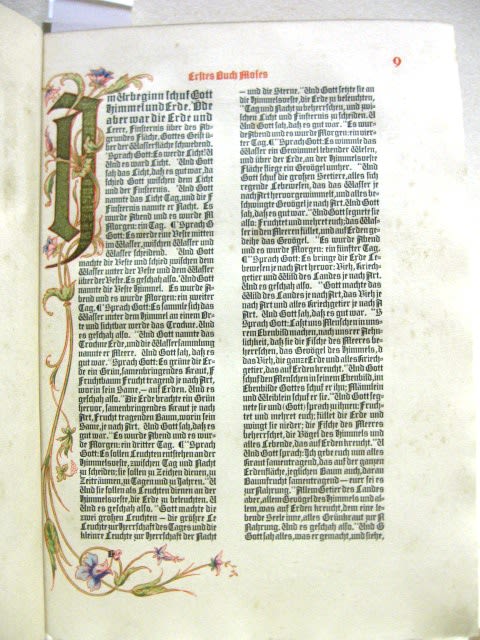 9
Erstes Buch Moses
Im Urbeginn schuf Gott
Himmel und Erde. Öde
aber war die Erde und
Leere, Finsternis über des Ab-
grundes Fläche, Gottes Geist ü-
ber der Wasserfläche schwebend.
Sprach Gott: Es werde Licht! U
Und es ward Licht. Und Gott
sah das Licht, daß es gut war, da
schied Gott zwischen dem Licht
und der Finsternis. Und Gott
nannte das Licht Tag, und die F
Finsternis nannte er Nacht. Es
wurde Abend und es wurde M
Morgen: ein Tag. ¶ Sprach G
Gott: Es werde eine Veste mitten
im Wasser, zwischen Wasser und
Wasser scheidend. Und Gott
machte die Veste und schied zwischen dem
Wasser unter der Veste und dem Wasser
über der Veste. Es geschah also. Und Gott
nannte die Veste Himmel. Es wurde A-
bend und es wurde Morgen: ein zweiter
Tag. ¶ Sprach Gott: Es sammle sich das
Wasser unter dem Himmel an einem Or-
te und sichtbar werde das Trockne. Und
es geschah also. Und Gott nannte das
Trockne Erde, und die Wassersammlung
nannte er Meere. Und Gott sah, daß es
gut war. Sprach Gott: Es grüne die Er-
de ein Grün, samenbringendes Kraut, F
Fruchtbaum Frucht tragend je nach Art,
worin sein Same, — auf Erden. Und es
geschah also. Die Erde brachte ein Grün
hervor, samenbringendes Kraut je nach
Art, Frucht tragenden Baum, worin sein
Same, je nach Art. Und Gott sah, daß es
gut war. Es wurde Abend und es wur-
de Morgen: ein dritter Tag. ¶ Sprach
Gott: Es sollen Leuchten entstehen an der
Himmelsveste, zwischen Tag und Nacht
zu scheiden; sie sollen zu Zeichen dienen, zu
Zeiträumen, zu Tagen und zu Jahren. U
Und sie sollen als Leuchten dienen an der
Himmelsveste, die Erde zu beleuchten. U
Und es geschah also. Gott machte die
zwei großen Leuchten — die größre Le
Leuchte zur Herrschaft des Tages und die
kleinre Leuchte zur Herrschaft der Nacht
— und die Sterne. Und Gott setzte sie an
die Himmelsveste, die Erde zu beleuchten,
Tag und Nacht zu beherrschen, und zwi-
schen Licht und Finsternis zu scheiden. U
Und Gott sah, daß es gut war. Es wur-
de Abend und es wurde Morgen: ein vier-
ter Tag. ¶ Sprach Gott: Es wimmle das
Wasser ein Gewimmel lebender Wesen,
und über der Erde, an der Himmelsveste
Fläche fliege ein Gevögel umher. Und
Gott schuf die großen Seetiere, alles sich
regende Lebewesen, das das Wasser je
nach Art hervorgewimmelt, und alles be-
schwingte Gevögel je nach Art. Und Gott
sah, daß es gut war. Und Gott segnete sie
also: Fruchtet und mehret euch; das Was-
ser in den Meeren füllet, und auf Erden ge-
deihe das Gevögel. Es wurde Abend
und es wurde Morgen: ein fünfter Tag.
¶ Sprach Gott: Es bringe die Erde Le-
bewesen je nach Art hervor: Vieh, Kriech-
getier und Wild des Landes je nach Art. U
Und es geschah also. Gott machte das
Wild des Landes je nach Art, das Vieh, je
nach Art und alles Kriechgetier je nach A
Art. Und Gott sah, daß es gut war. S
Sprach Gott: Laßt uns Menschen in uns-
rem Ebenbild machen, nach unsrer Aehn-
lichkeit, daß sie die Fische des Meeres be-
herrschen, das Gevögel des Himmels, d
das Vieh, die ganze Erde und alles Kriech-
getier, das auf Erden kreucht. Und Gott
schuf den Menschen in seinem Ebenbild, im
Ebenbilde Gottes schuf er ihn; Männlein
und Weiblein schuf er sie. Und Gott seg-
nete sie und (Gott) sprach zu ihnen: Fruch-
tet und mehret euch; füllet die Erde und
zwingt sie nieder; die Fische des Meeres
beherrschet, die Vögel des Himmels und
alles Lebende, das auf Erden kreucht. U
Und Gott sprach: Ich gebe euch nun alles
Kraut samentragend, das auf der ganzen
Erdenfläche, jeglichen Baum auch, daran
Baumfrucht samentragend — euer sei es
zur Nahrung. Allem Getier des Landes
aber, allem Gevögel des Himmels und al-
lem, was auf Erden kreucht, dem eine le-
bende Seele inne, alles Grünkraut zur N
Nahrung. Und es geschah also. Und G
Gott sah alles, was er gemacht, und siehe,